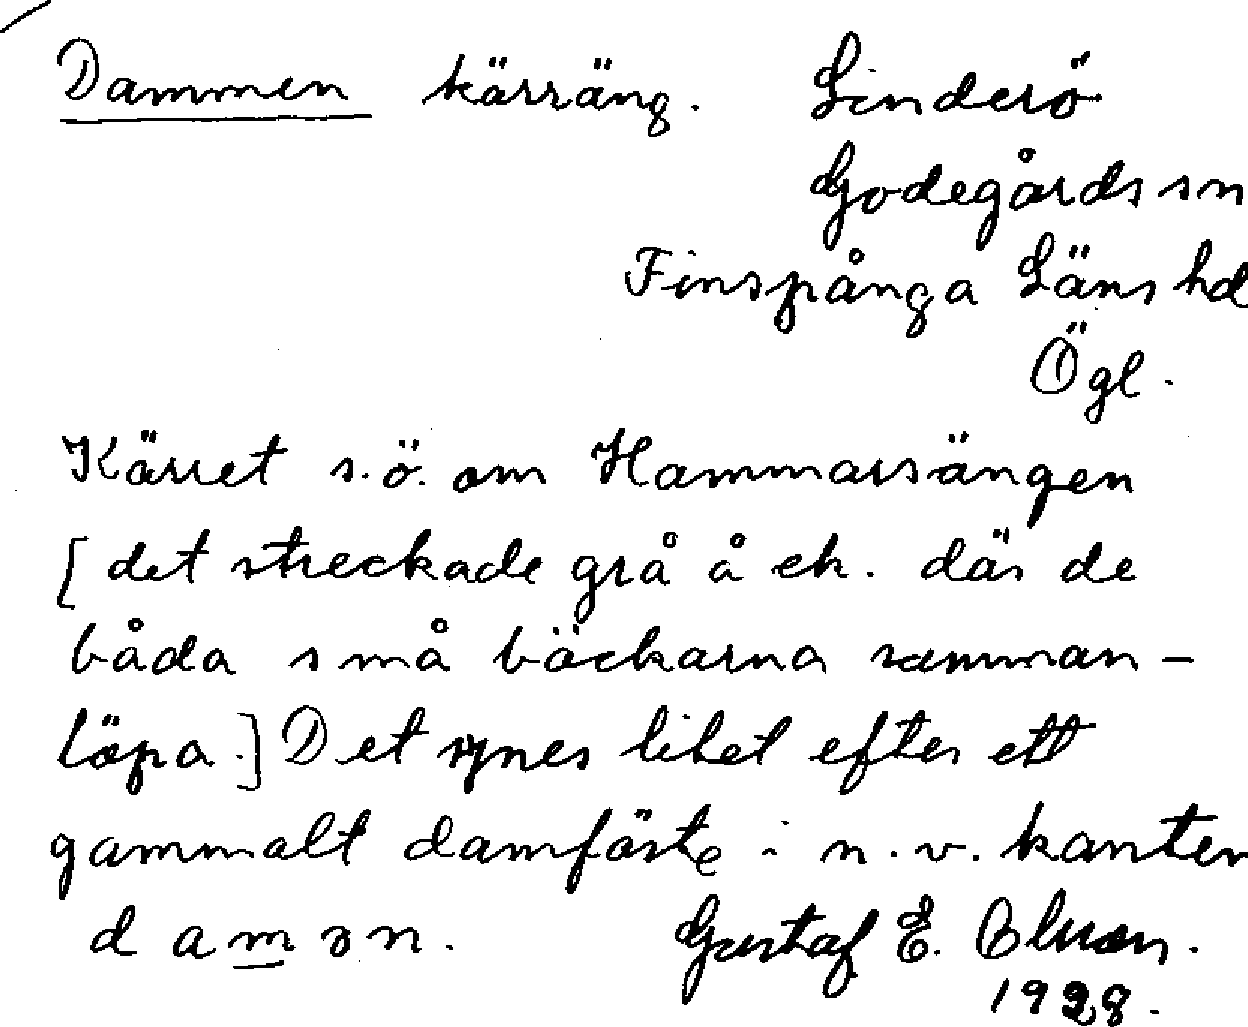 Dammen kärräng. Linderö
Godegårds sn
Finspånga Läns hd
Ögl.
Kärret s.ö. om Hammarsängen
[det streckade grå å ek. där de
båda små bäckarna samman-
löpa.] Det synes litet efter ett
gammalt damfäste i n.v. kanten
Gustaf E.
1928.